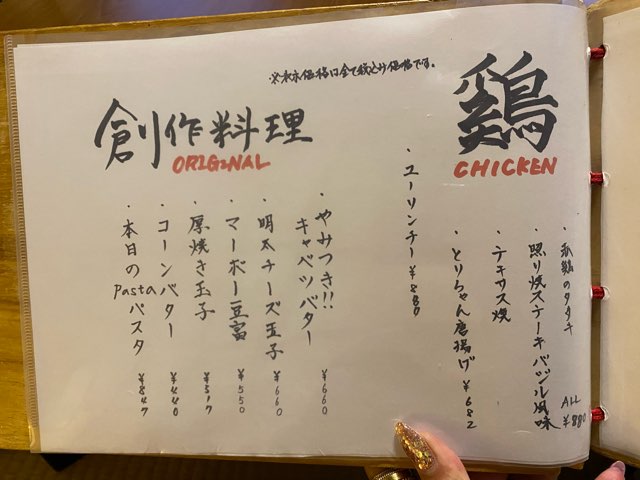 ※表示価格は全て税込み価格です。
鶏
CHICKEN
・赤鶏のタタキ
・照り焼ステーキバジル風味
・テキサス焼
ALL
¥880
・とりちゃん唐揚げ ¥682
・ユーリンチー ¥880
創作料理
ORIGINAL
・やみつき!!
キャベツバター ¥660
・明太チーズ玉子 ¥660
・マーボー豆富 ¥550
・厚焼き玉子 ¥517
・コーンバター ¥440
・本日のPastaパスタ ¥847